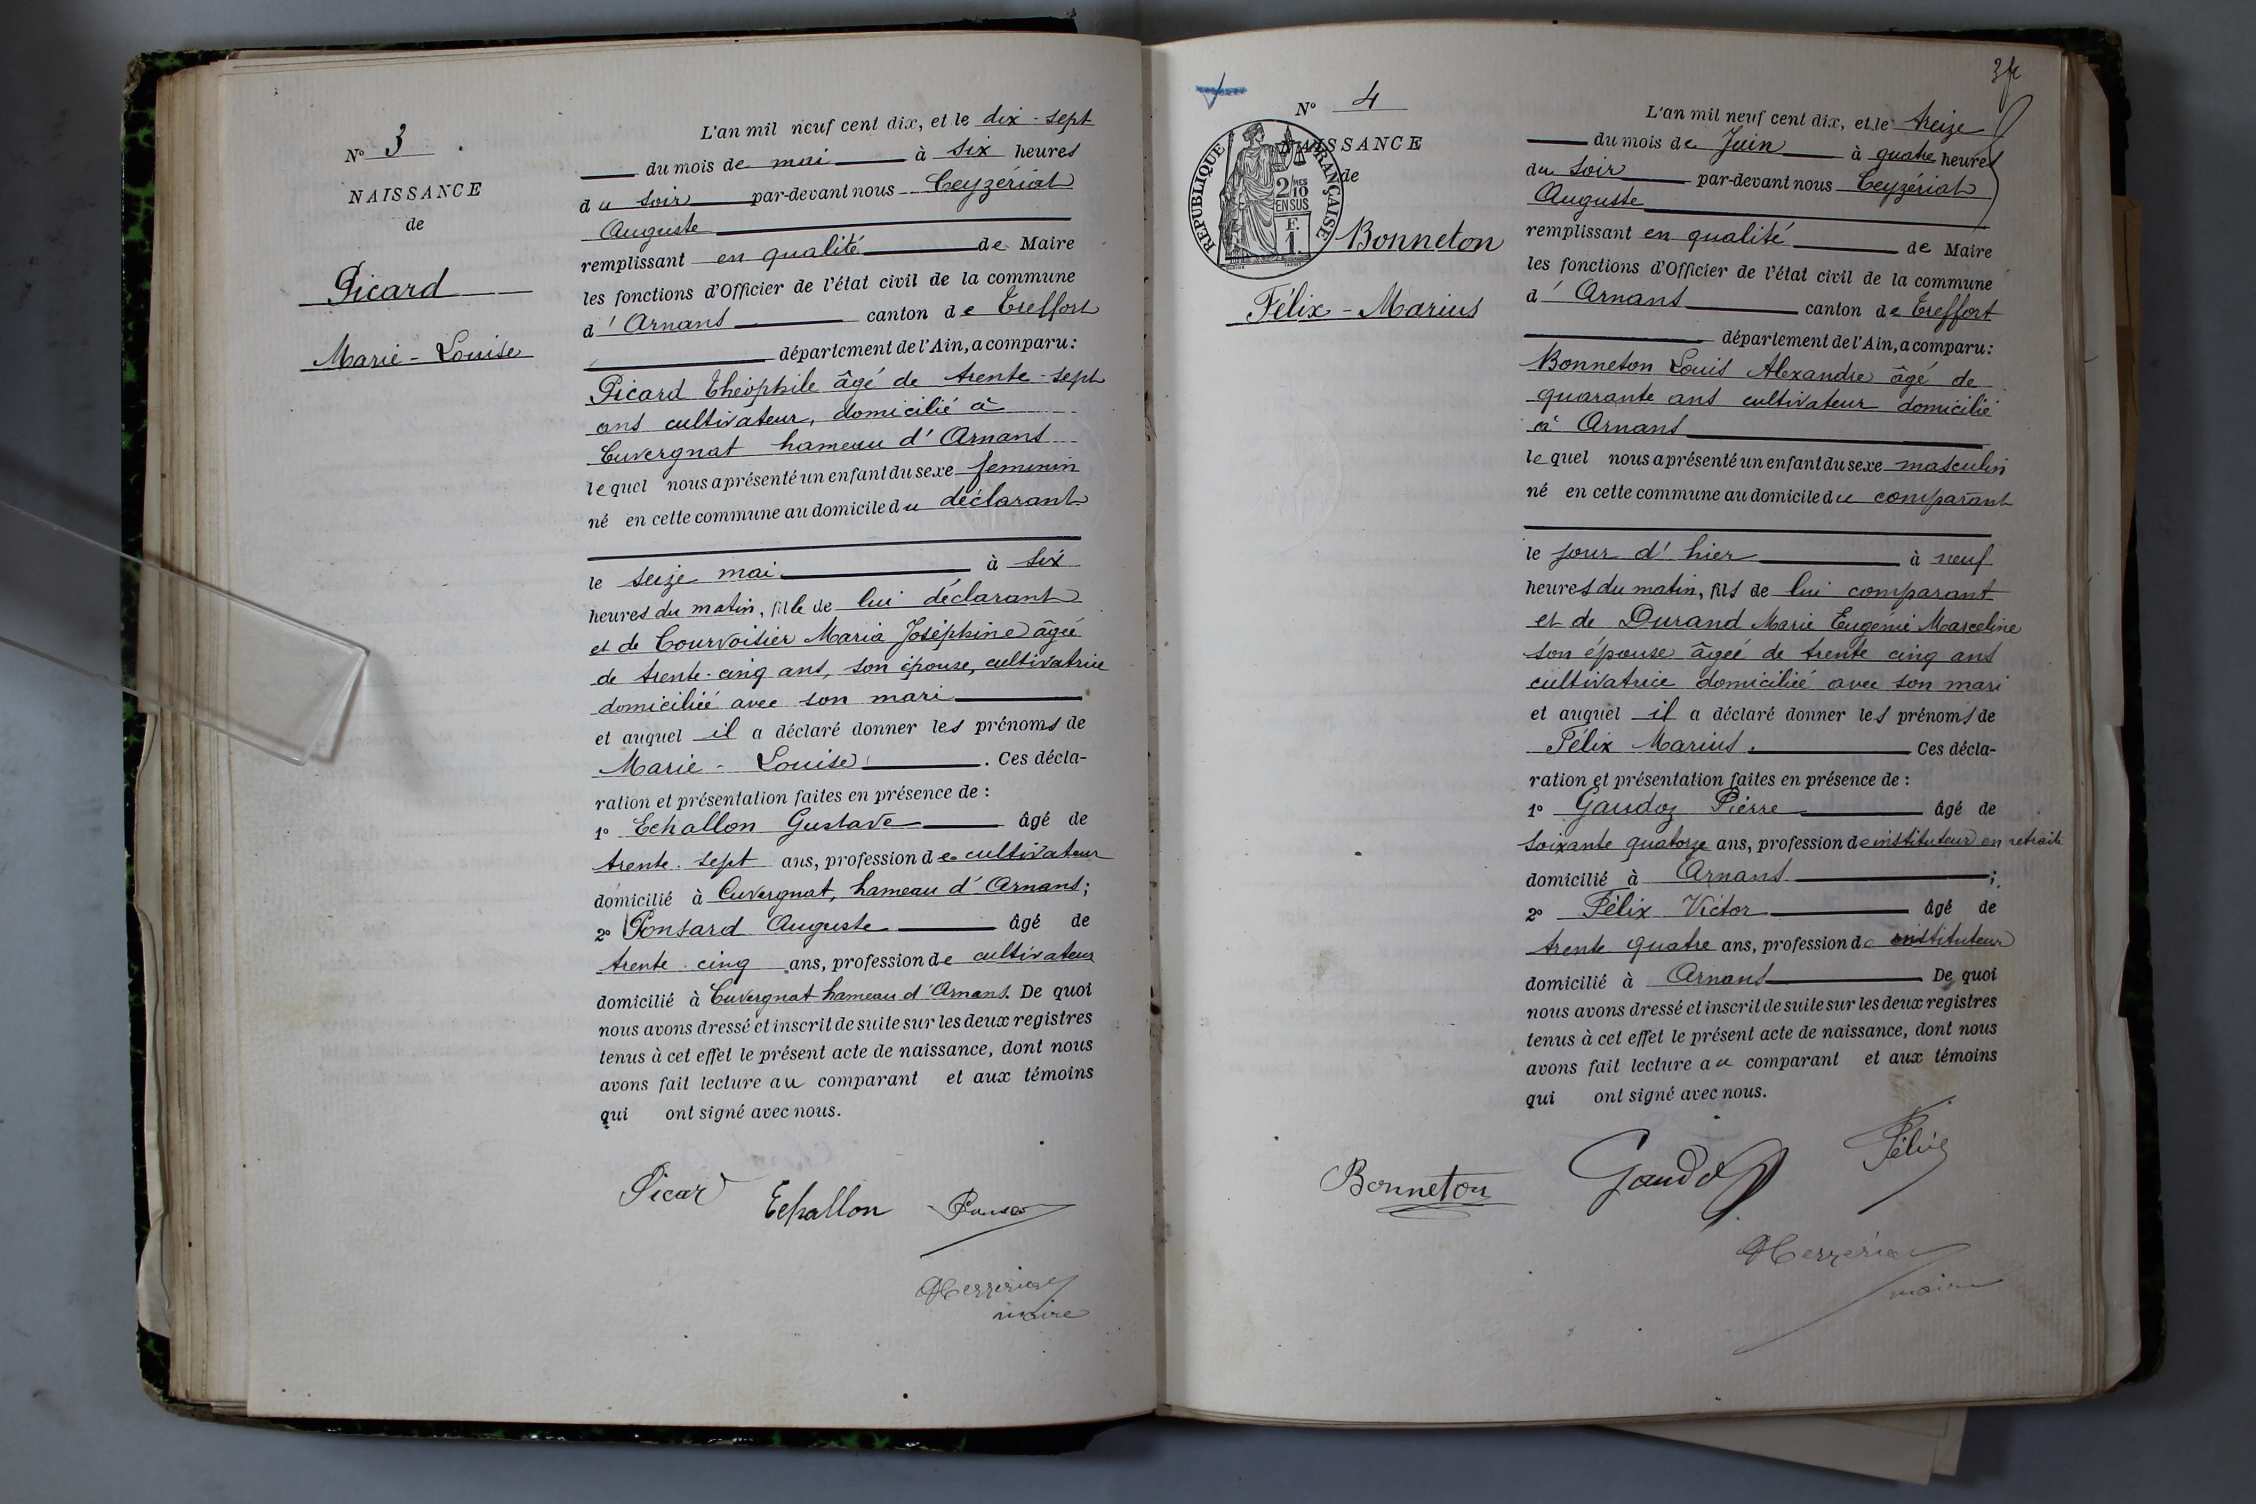 N° 3
NAISSANCE
de
Picard
Marie - Louise
L'an mil neuf cent dix, et le dix - sept
du mois de mai à six heures
du soir par-devant nous Ceyzériat
Auguste
remplissant en qualité de Maire
les fonctions d'Officier de l'état civil de la commune
d' Arnans canton de Treffort
département de l'Ain, a comparu :
Picard Théophile âgé de trente-sept
ans cultivateur, domicilié à
Cuvergnat hameau d'Arnans
lequel nous a présenté un enfant du sexe feminin
né en cette commune au domicile du déclarant
le seize mai à six
heures du matin, fille de lui déclarant
et de Courvoisier Maria Joséphine âgée
de trente-cinq ans, son épouse, cultivatrice
domiciliée avec son mari
et auquel il a déclaré donner les prénoms de
Marie - Louise . Ces décla-
ration et présentation faites en présence de :
1° Echallon Gustave âgé de
trente-sept ans, profession de cultivateur
domicilié à Cuvergnat, hameau d'Arnans ;
2° Ponsard Auguste âgé de
trente-cinq ans, profession de cultivateur
domicilié à Cuvergnat hameau d'Arnans. De quoi
nous avons dressé et inscrit de suite sur les deux registres
tenus à cet effet le présent acte de naissance, dont nous
avons fait lecture au comparant et aux témoins
qui ont signé avec nous.
Picard Echallon
maire
N° 4
NAISSANCE
de
RÉPUBLIQUE FRANÇAISE
2/10 MES
EN SUS
F.
1.
Bonneton
Félix - Marius
L'an mil neuf cent dix, et le treize
du mois de Juin à quatre heures
du soir par-devant nous Ceyzériat
Auguste
remplissant en qualité de Maire
les fonctions d'Officier de l'état civil de la commune
d' Arnans canton de Treffort
département de l'Ain, a comparu :
Bonneton Louis Alexandre âgé de
quarante ans cultivateur domicilié
à Arnans
lequel nous a présenté un enfant du sexe masculin
né en cette commune au domicile du comparant
le jour d'hier à neuf
heures du matin, fils de lui comparant
et de Durand Marie Eugénie Marceline
son épouse âgée de trente cinq ans
cultivatrice domiciliée avec son mari
et auquel il a déclaré donner les prénoms de
Félix Marius. Ces décla-
ration et présentation faites en présence de :
1° Gaudoz Pierre âgé de
soixante quatorze ans, profession de instituteur en retraite
domicilié à Arnans ;
2° Félix Victor âgé de
trente quatre ans, profession de instituteur
domicilié à Arnans De quoi
nous avons dressé et inscrit de suite sur les deux registres
tenus à cet effet le présent acte de naissance, dont nous
avons fait lecture au comparant et aux témoins
qui ont signé avec nous.
Bonneton Gaudoz Félix
maire